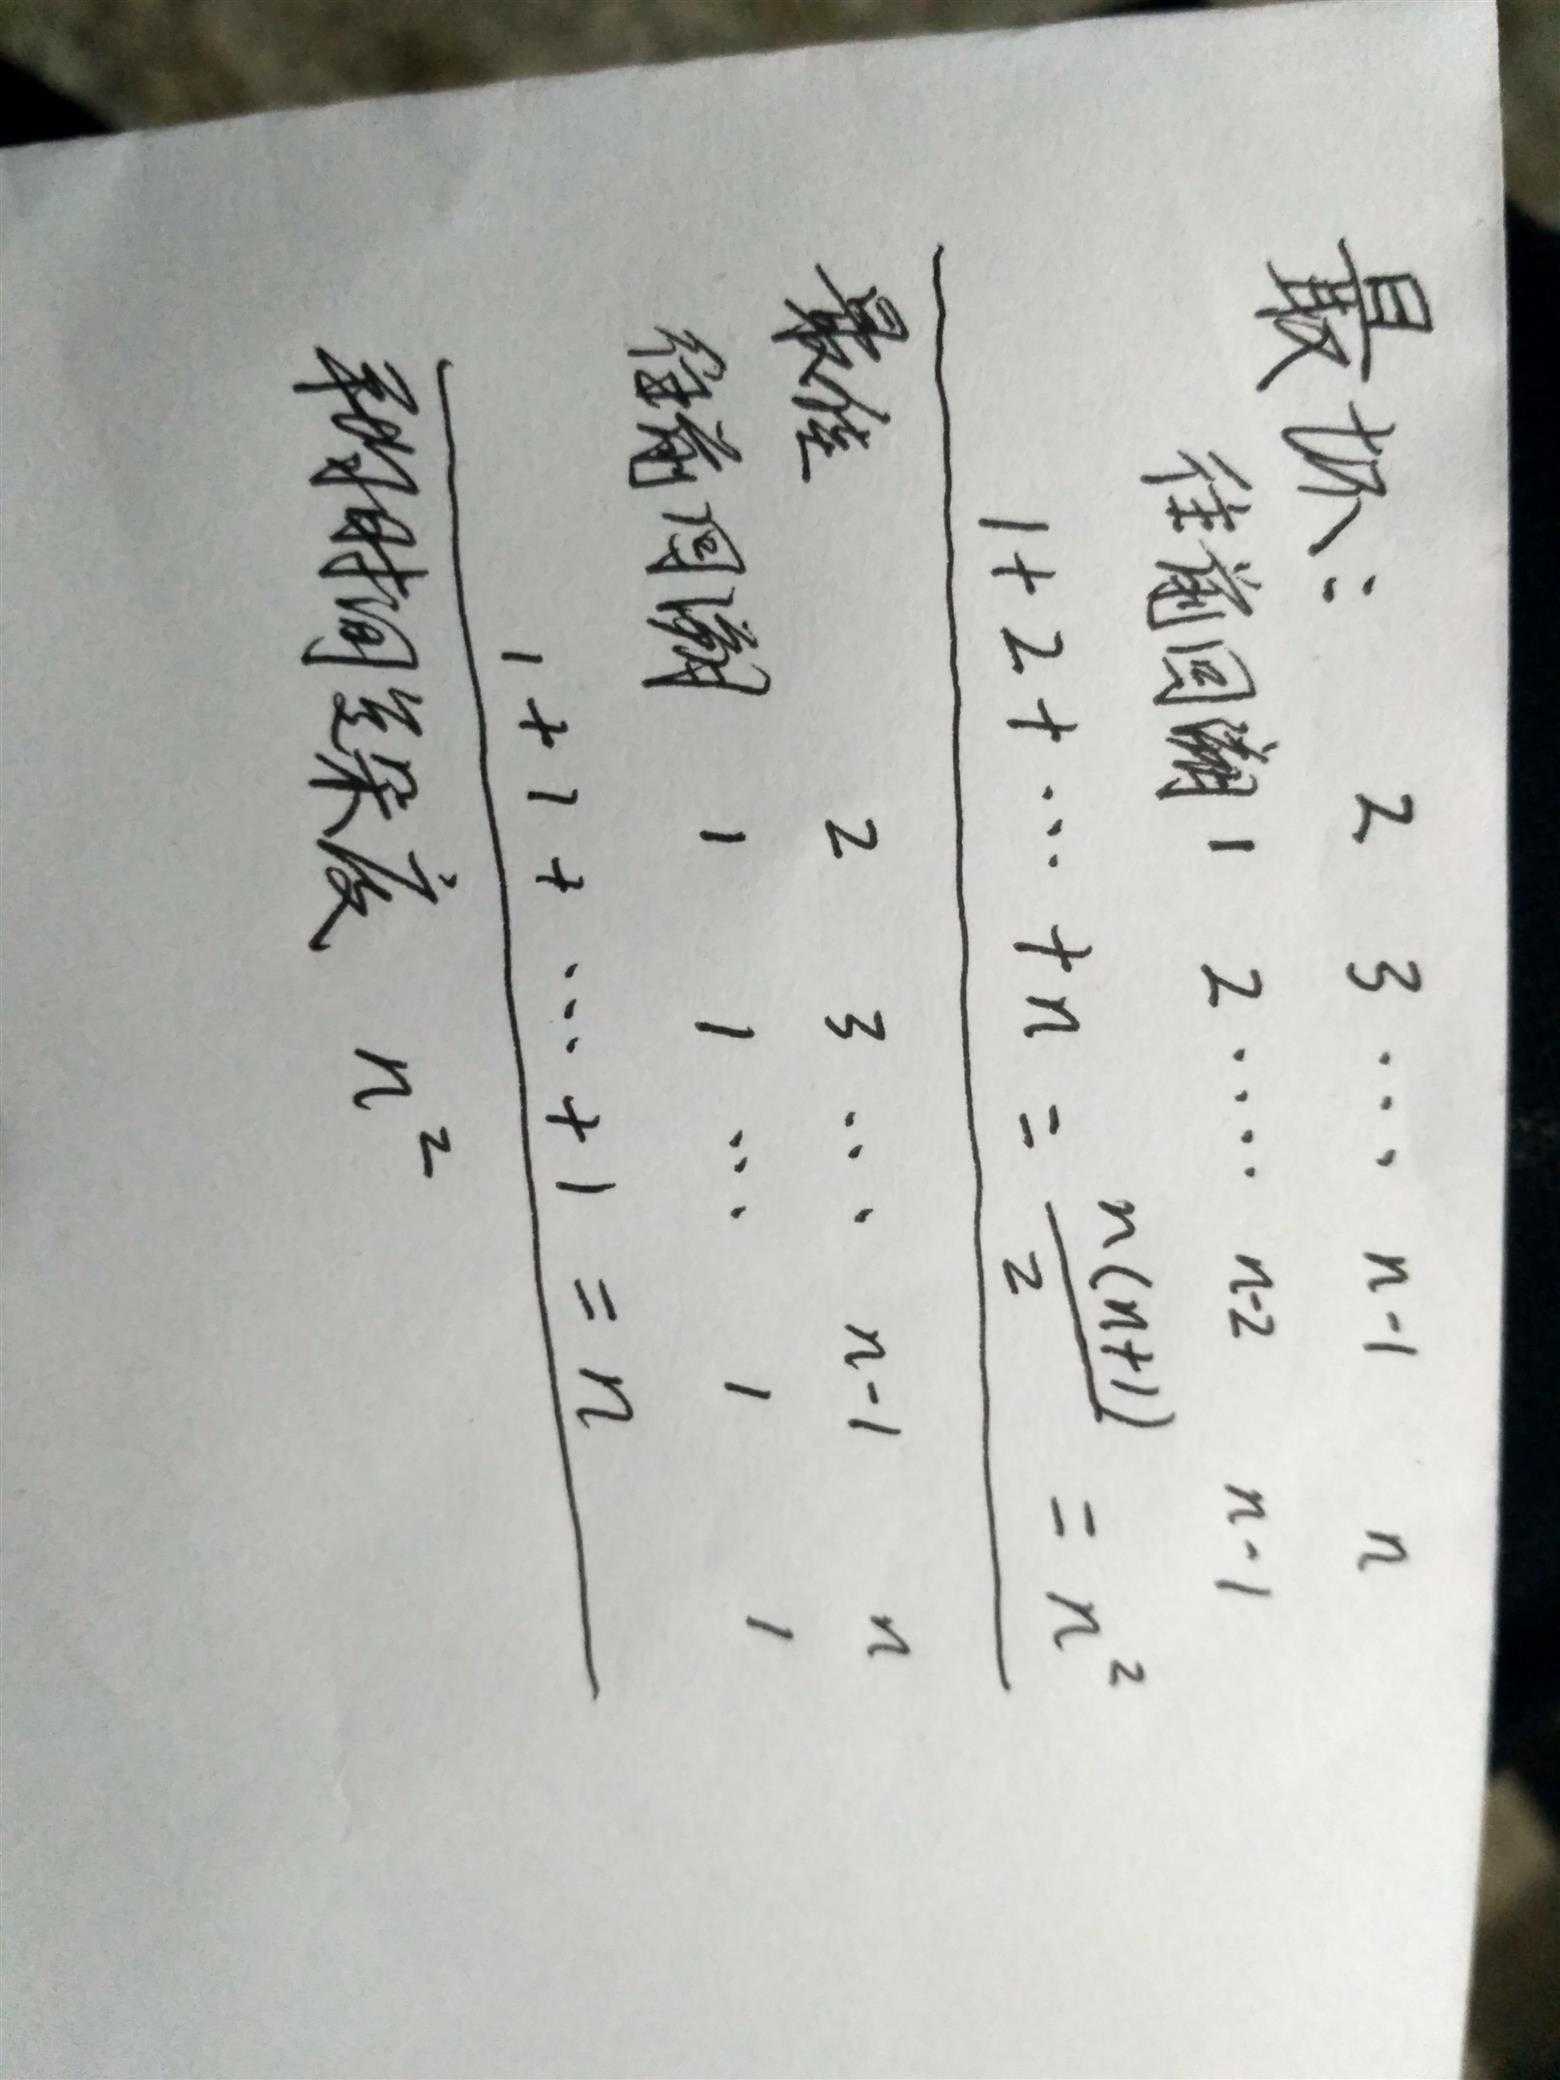 最坏: 2 3 ... n-1 n
往前回溯 1 2 .... n-2 n-1
1+2+...+n = n(n+1)/2 = n²
最佳 2 3 ... n-1 n
往前回溯 1 1 ... 1 1
1+1+...+1 = n
时间复杂度 n²